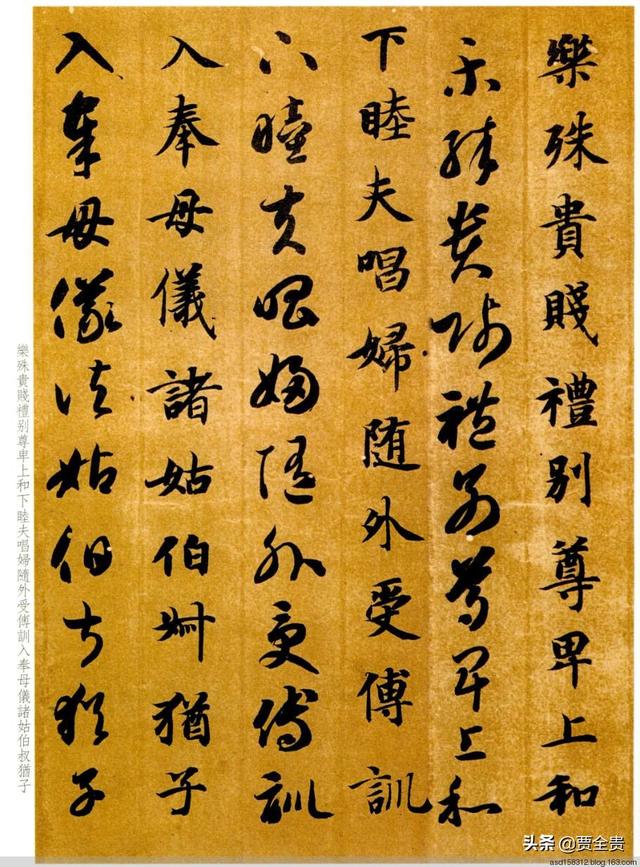 樂殊貴賤禮别尊卑上和
樂殊貴賤禮别尊卑上和
下睦夫唱婦随外受傅訓
下睦夫唱婦随外受傅訓
入奉母儀諸姑伯叔猶子
入奉母儀諸姑伯叔猶子
樂殊貴賤禮别尊卑上和下睦夫唱婦隨外受傅訓入奉母儀諸姑伯叔猶子
头条 @贾全贵
asd158312.blog.163.com